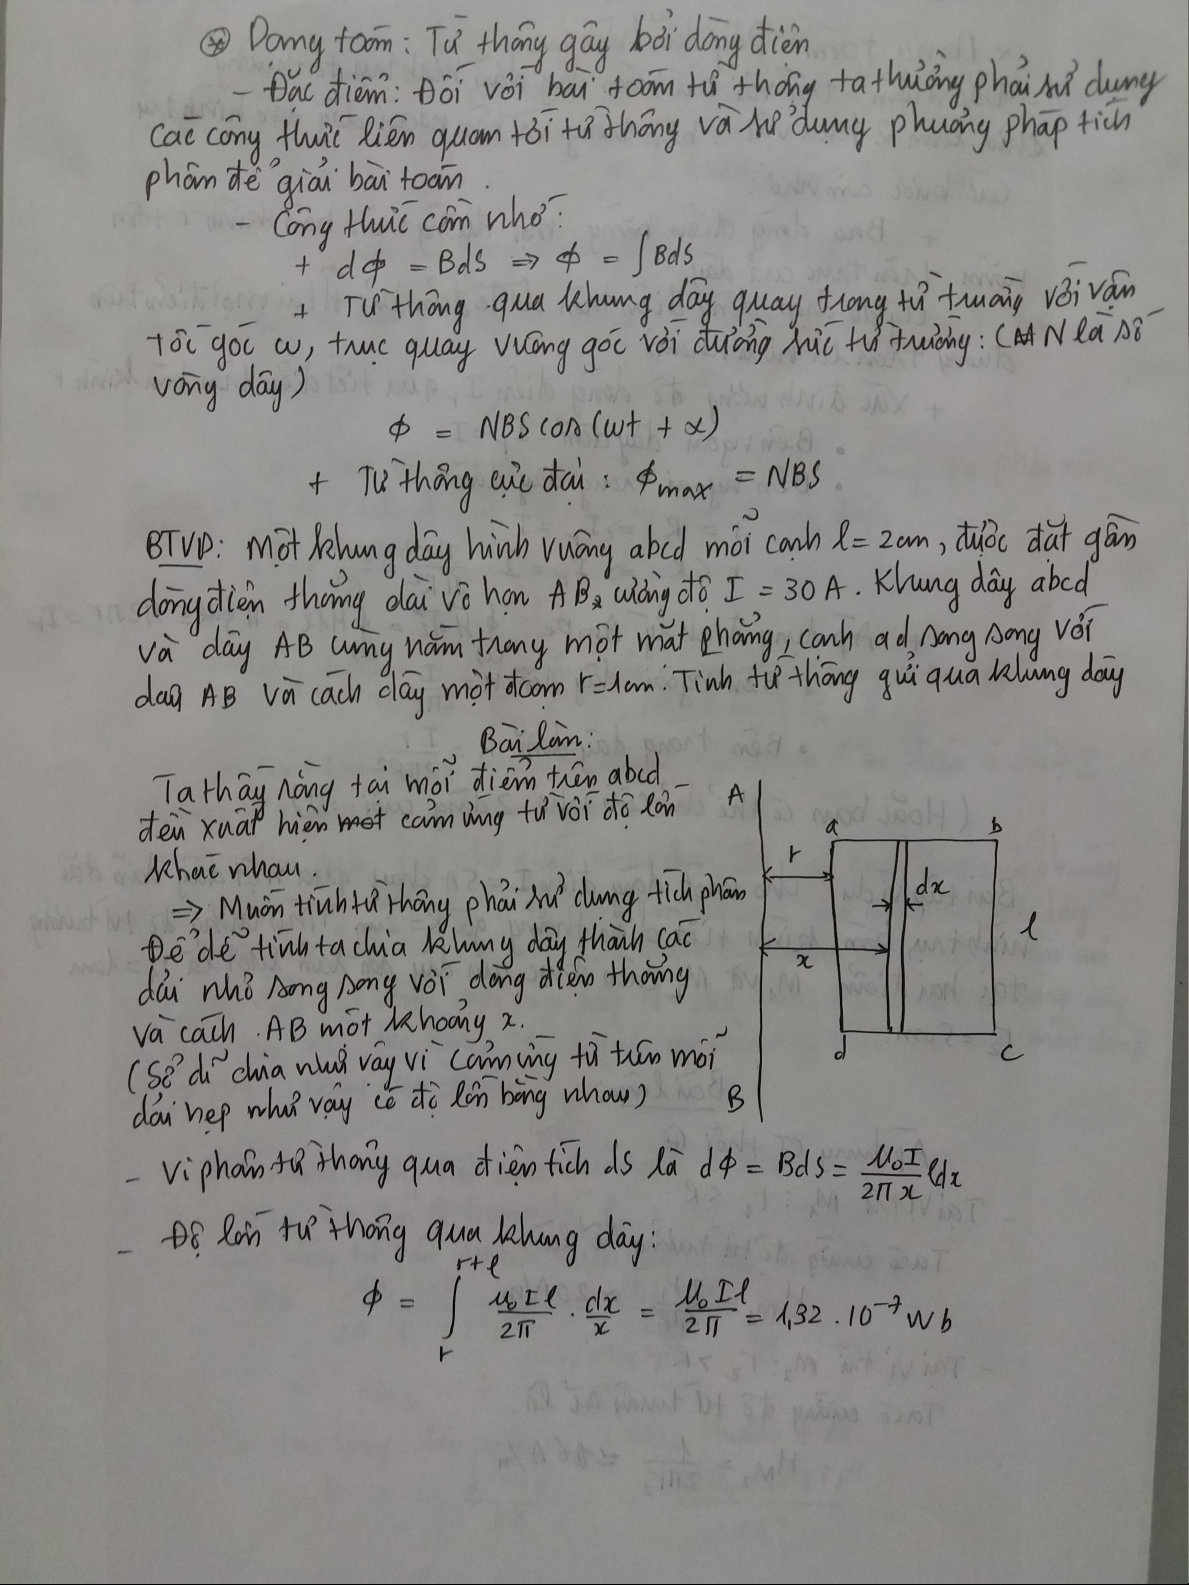 ⊛ Dạng toán: Từ thông gây bởi dòng điện
- Đặc điểm: Đối với bài toán từ thông ta thường phải sử dụng
các công thức liên quan tới từ thông và sử dụng phương pháp tích
phân để giải bài toán.
- Công thức cần nhớ:
+ dϕ = BdS ⇒ ϕ = ∫BdS
+ Từ thông qua khung dây quay trong từ trường với vận
tốc góc ω, trục quay vuông góc với đường sức từ trường: (N là số
vòng dây)
ϕ = NBS cos(ωt + α)
+ Từ thông cực đại: ϕmax = NBS
BTVD: Một khung dây hình vuông abcd mỗi cạnh l = 2cm, được đặt gần
dòng điện thẳng dài vô hạn AB, cường độ I = 30A. Khung dây abcd
và dây AB cùng nằm trong một mặt phẳng, cạnh ad song song với
dây AB và cách dây một đoạn r=1cm. Tính từ thông gửi qua khung dây
Bài làm:
Ta thấy rằng tại mỗi điểm trên abcd
đều xuất hiện một cảm ứng từ với độ lớn
khác nhau.
⇒ Muốn tính từ thông phải sử dụng tích phân
Để dễ tính ta chia khung dây thành các
dải nhỏ song song với dòng điện thẳng
và cách AB một khoảng x.
(Sở dĩ chia như vậy vì cảm ứng từ trên mỗi
dải hẹp như vậy có độ lớn bằng nhau)
A
a
b
r
dx
x
l
d
c
B
- Vi phân từ thông qua diện tích dS là dϕ = BdS = μ₀I/2πx ldx
- Độ lớn từ thông qua khung dây:
ϕ = ∫_r^{r+l} μ₀Il/2π . dx/x = μ₀Il/2π = 1,32 . 10⁻⁷ Wb